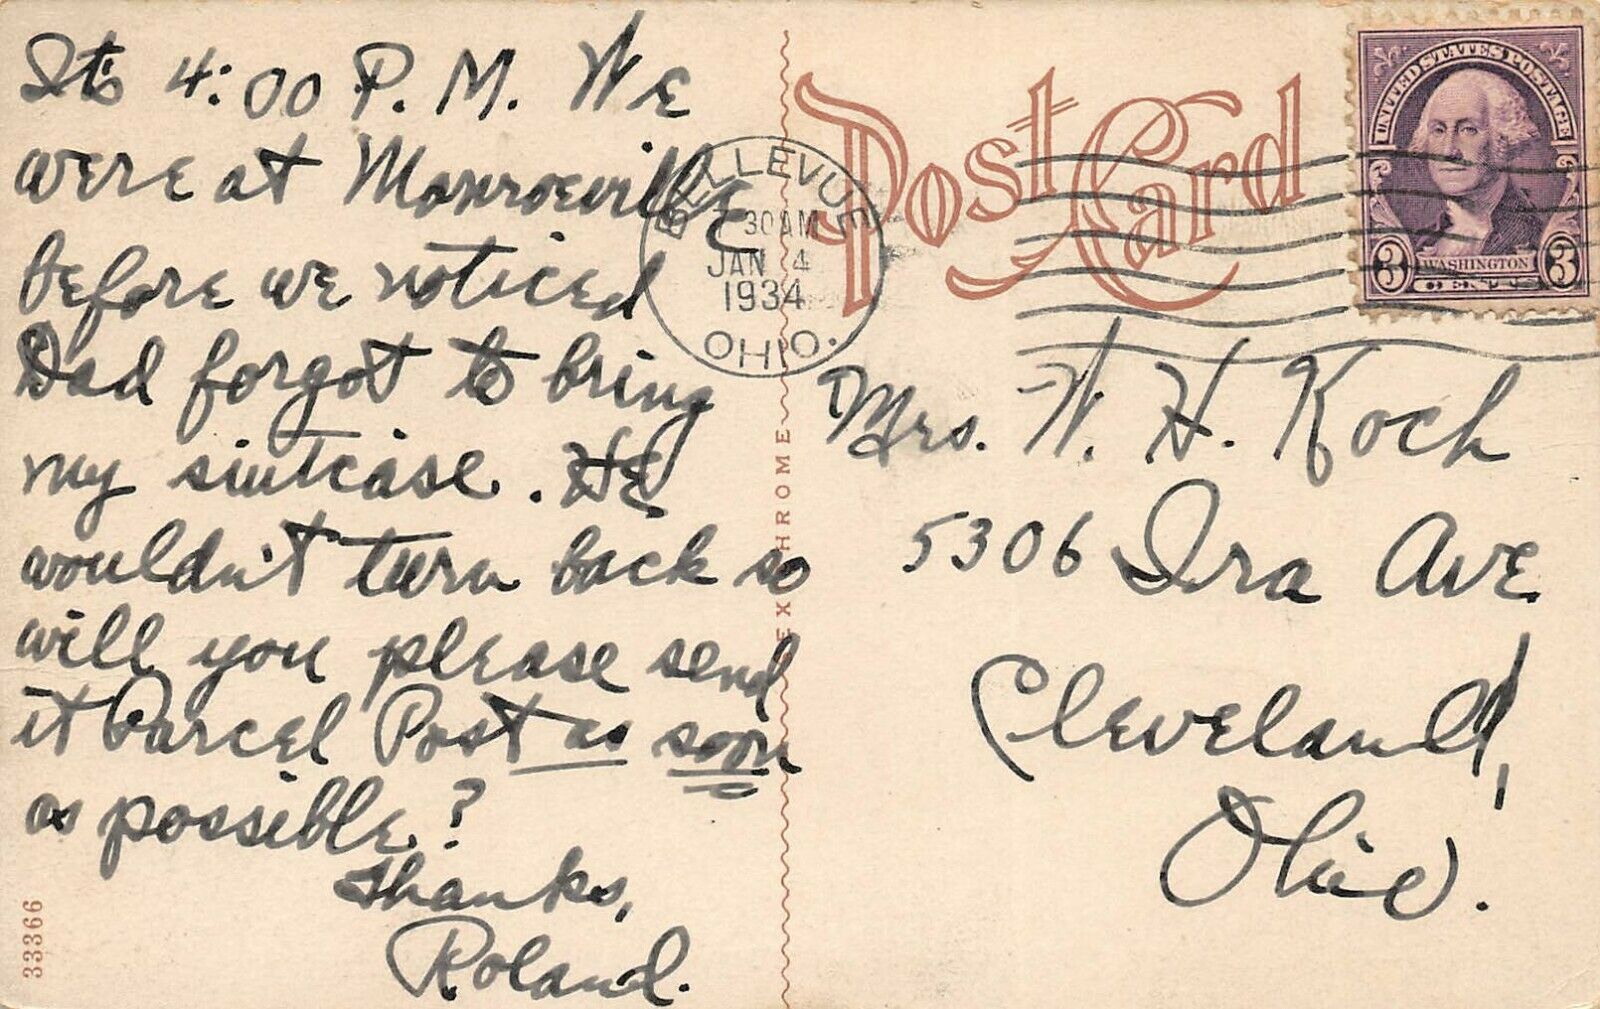 Its 4:00 P.M. We
were at Monroeville
before we noticed
Dad forgot to bring
my suitcase. He
wouldn't turn back so
will you please send
it Parcel Post as soon
as possible?
Thanks,
Roland.
33366
HROME
EX
BELLEVUE
30 AM
JAN 4
1934
OHIO.
Post Card
UNITED STATES POSTAGE
3 WASHINGTON 3
Mrs. W. H. Koch
5306 Ira Ave.
Cleveland,
Ohio.